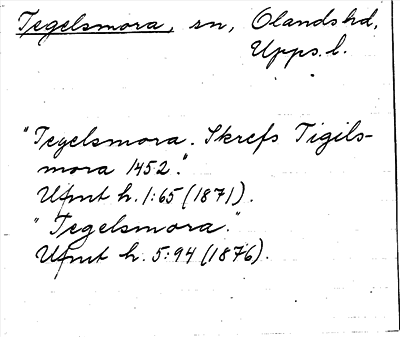 Tegelsmora, sn, Olands hd,
Upps. l.
"Tegelsmora. Skrefs Tigils-
mora 1452."
Ufmt h. 1:65 (1871).
"Tegelsmora."
Ufmt h. 5:94 (1876).